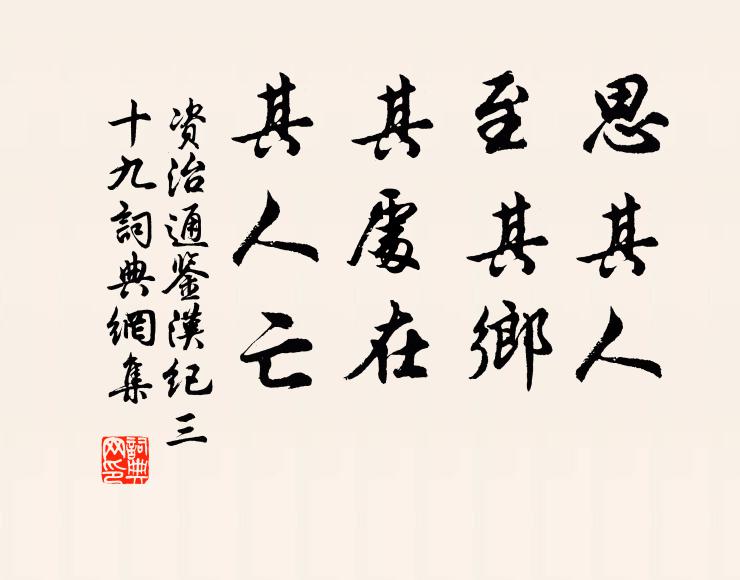 思其人
至其鄉
其處在
其人亡
资治通鉴漢紀三
十九詞典網集
詞典
网印